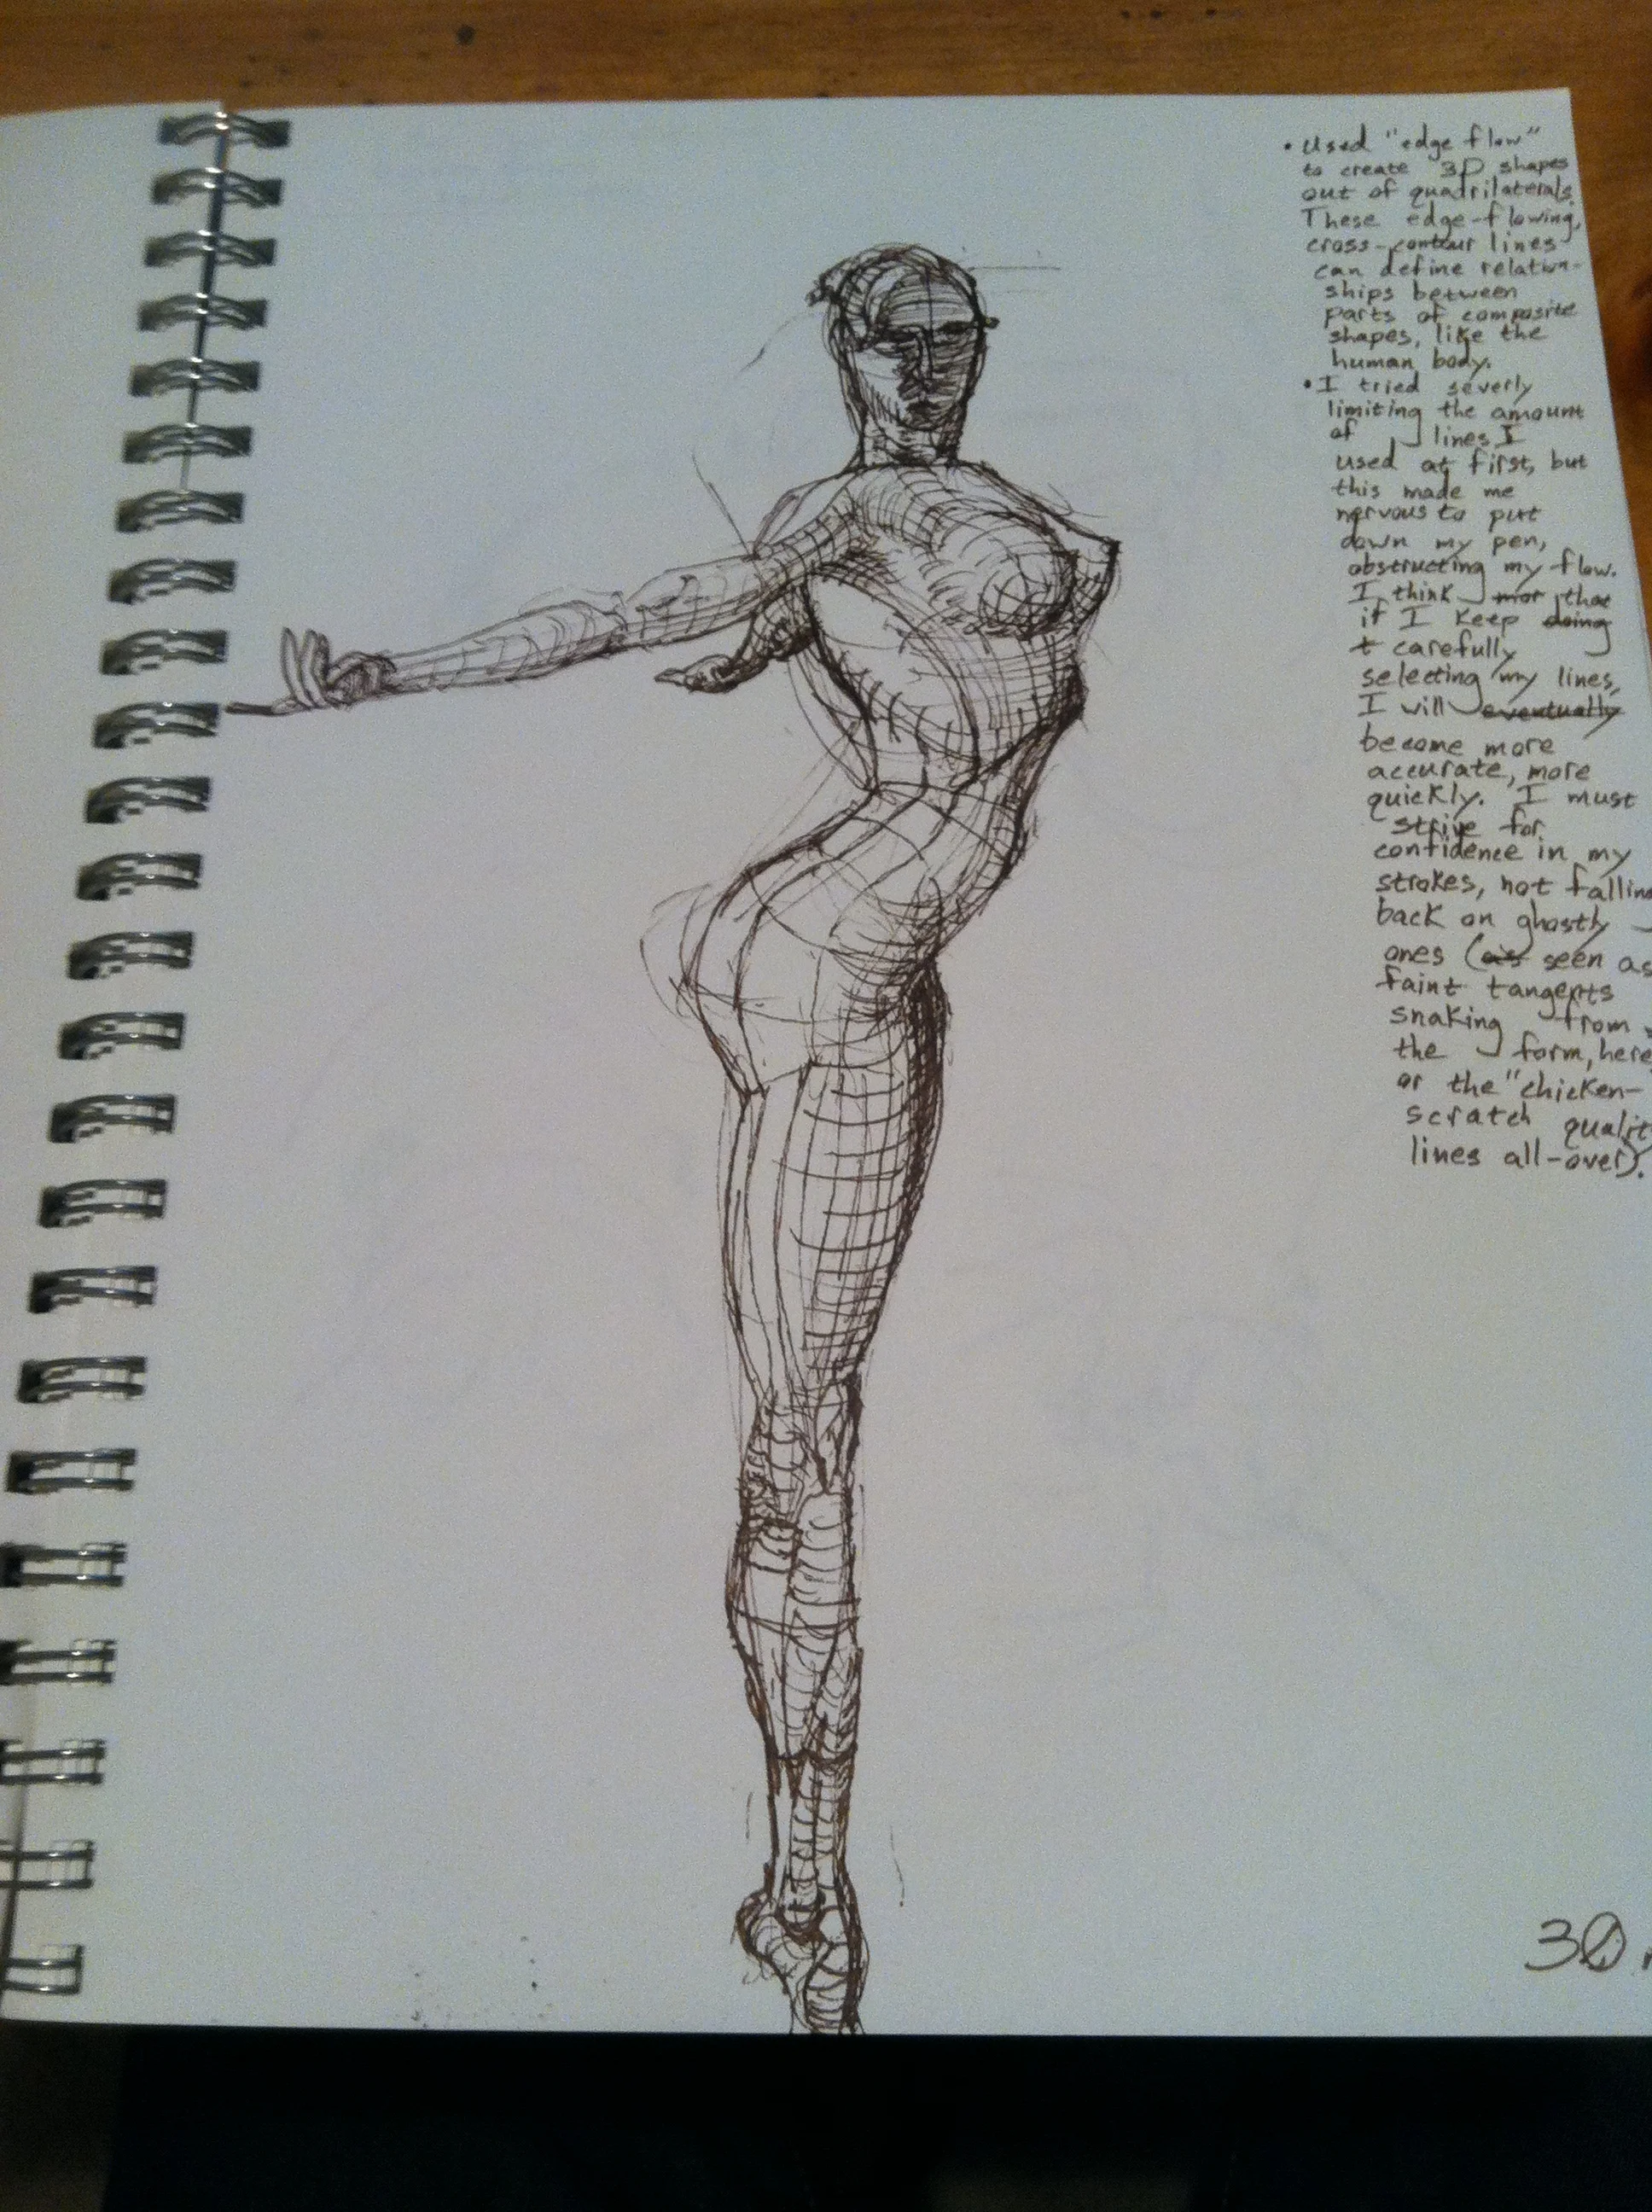 • Used "edge flow"
to create 3D shapes
out of quadrilaterals.
These edge-flowing,
cross-contour lines
can define relation-
ships between
parts of composite
shapes, like the
human body.
• I tried severly
limiting the amount
of lines I
used at first, but
this made me
nervous to put
down my pen,
obstructing my flow.
I think that
if I keep doing
t carefully
selecting my lines,
I will eventually
become more
accurate, more
quickly. I must
strive for
confidence in my
strokes, not falling
back on ghostly
ones (as seen as
faint tangents
snaking from
the form, here,
or the "chicken-
scratch quality
lines all-over).
30